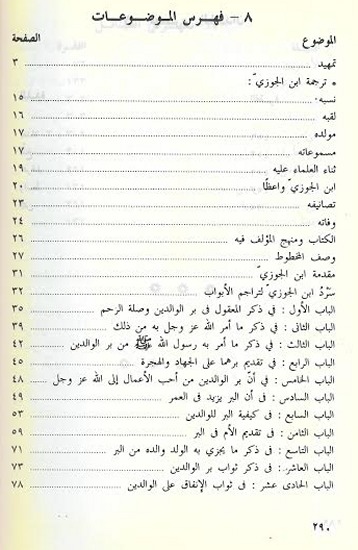 ٨ - فهـرس الموضـوعـات
الموضوع الصفحة
تمهيد ٣
* ترجمة ابن الجوزيّ :
نسبه ١٥
لقبه ١٦
مولده ١٧
مسموعاته ١٧
ثناء العلماء عليه ١٩
ابن الجوزيّ واعظًا ٢٠
تصانيفه ٢٣
وفاته ٢٤
الكتاب ومنهج المؤلف فيه ٢٦
وصف المخطوط ٢٧
مقدمة ابن الجوزيّ ٣١
سَرْدُ ابن الجوزيّ لتراجم الأبواب ٣٢
الباب الأول : فى ذكر المعقول فى بر الوالدين وصلة الرحم ٣٥
الباب الثانى : فى ذكر ما أمر الله عز وجل به من ذلك ٣٩
الباب الثالث : فى ذكر ما أمر به رسول الله ﷺ من بر الوالدين ٤٢
الباب الرابع : فى تقديم برهما على الجهاد والهجرة ٤٥
الباب الخامس : فى أنّ بر الوالدين من أحب الأعمال إلى الله عز وجل ٤٨
الباب السادس : فى أن البر يزيد فى العمر ٤٩
الباب السابع : فى كيفية البر للوالدين ٥٣
الباب الثامن : فى تقديم الأم فى البر ٥٩
الباب التاسع : فى ذكر ما يجزي به الولد والده من البر ٧١
الباب العاشر : فى ذكر ثواب بر الوالدين ٧٣
الباب الحادى عشر : فى ثواب الإنفاق على الوالدين ٧٨
٢٩٠